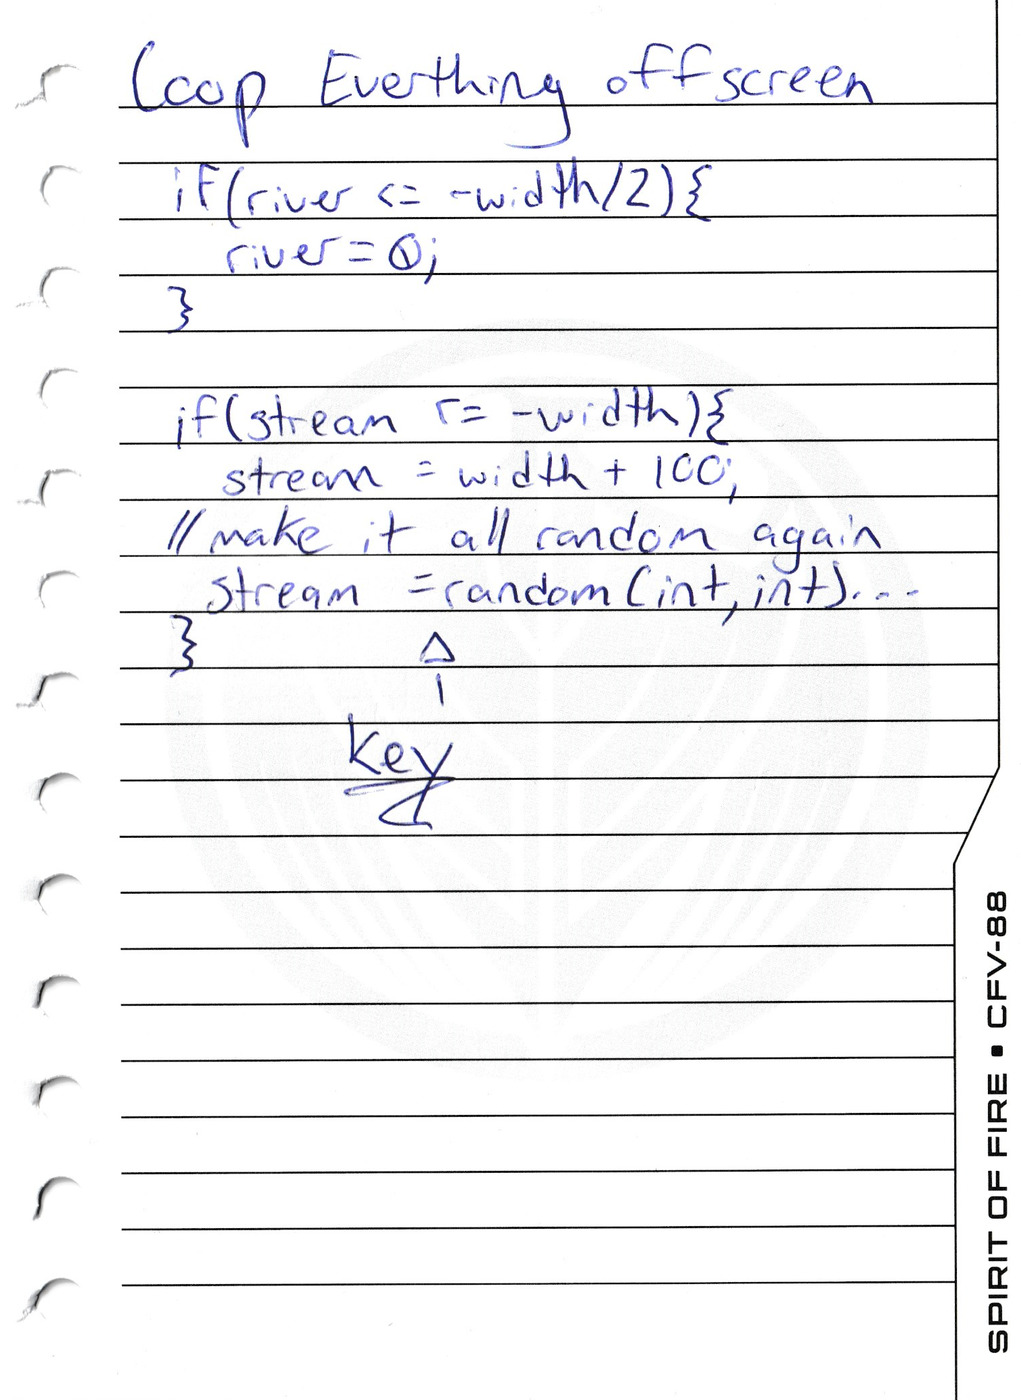 Loop Everthing offscreen
if(river <= -width/2){
river = 0;
}
if(stream r= -width){
stream = width + 100;
//make it all random again
stream =random(int, int)....
}
key
SPIRIT OF FIRE ▪ CFV-88